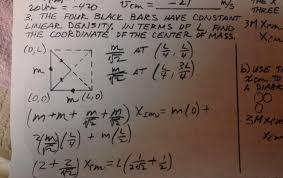 20km → -470
vcm = -21 m/s
3. THE FOUR BLACK BARS HAVE CONSTANT
LINEAR DENSITY. IN TERMS OF L FIND
THE COORDINATE OF THE CENTER OF MASS.
(0,L)
m/√2 AT (L/4, L/4)
m
m/√2 AT (L/4, 3L/4)
(0,0) m (L,0)
(m + m + m/√2 + m/√2) Xcm = m(0) +
2(m/√2)(L/4) + m(L/2)
(2 + 2/√2) Xcm = L(1/2√2 + 1/2)
THREE
3M Xcm
Xcm
b) USE T
Xcm TO
A DIAGR
3M Xcm
Xcm